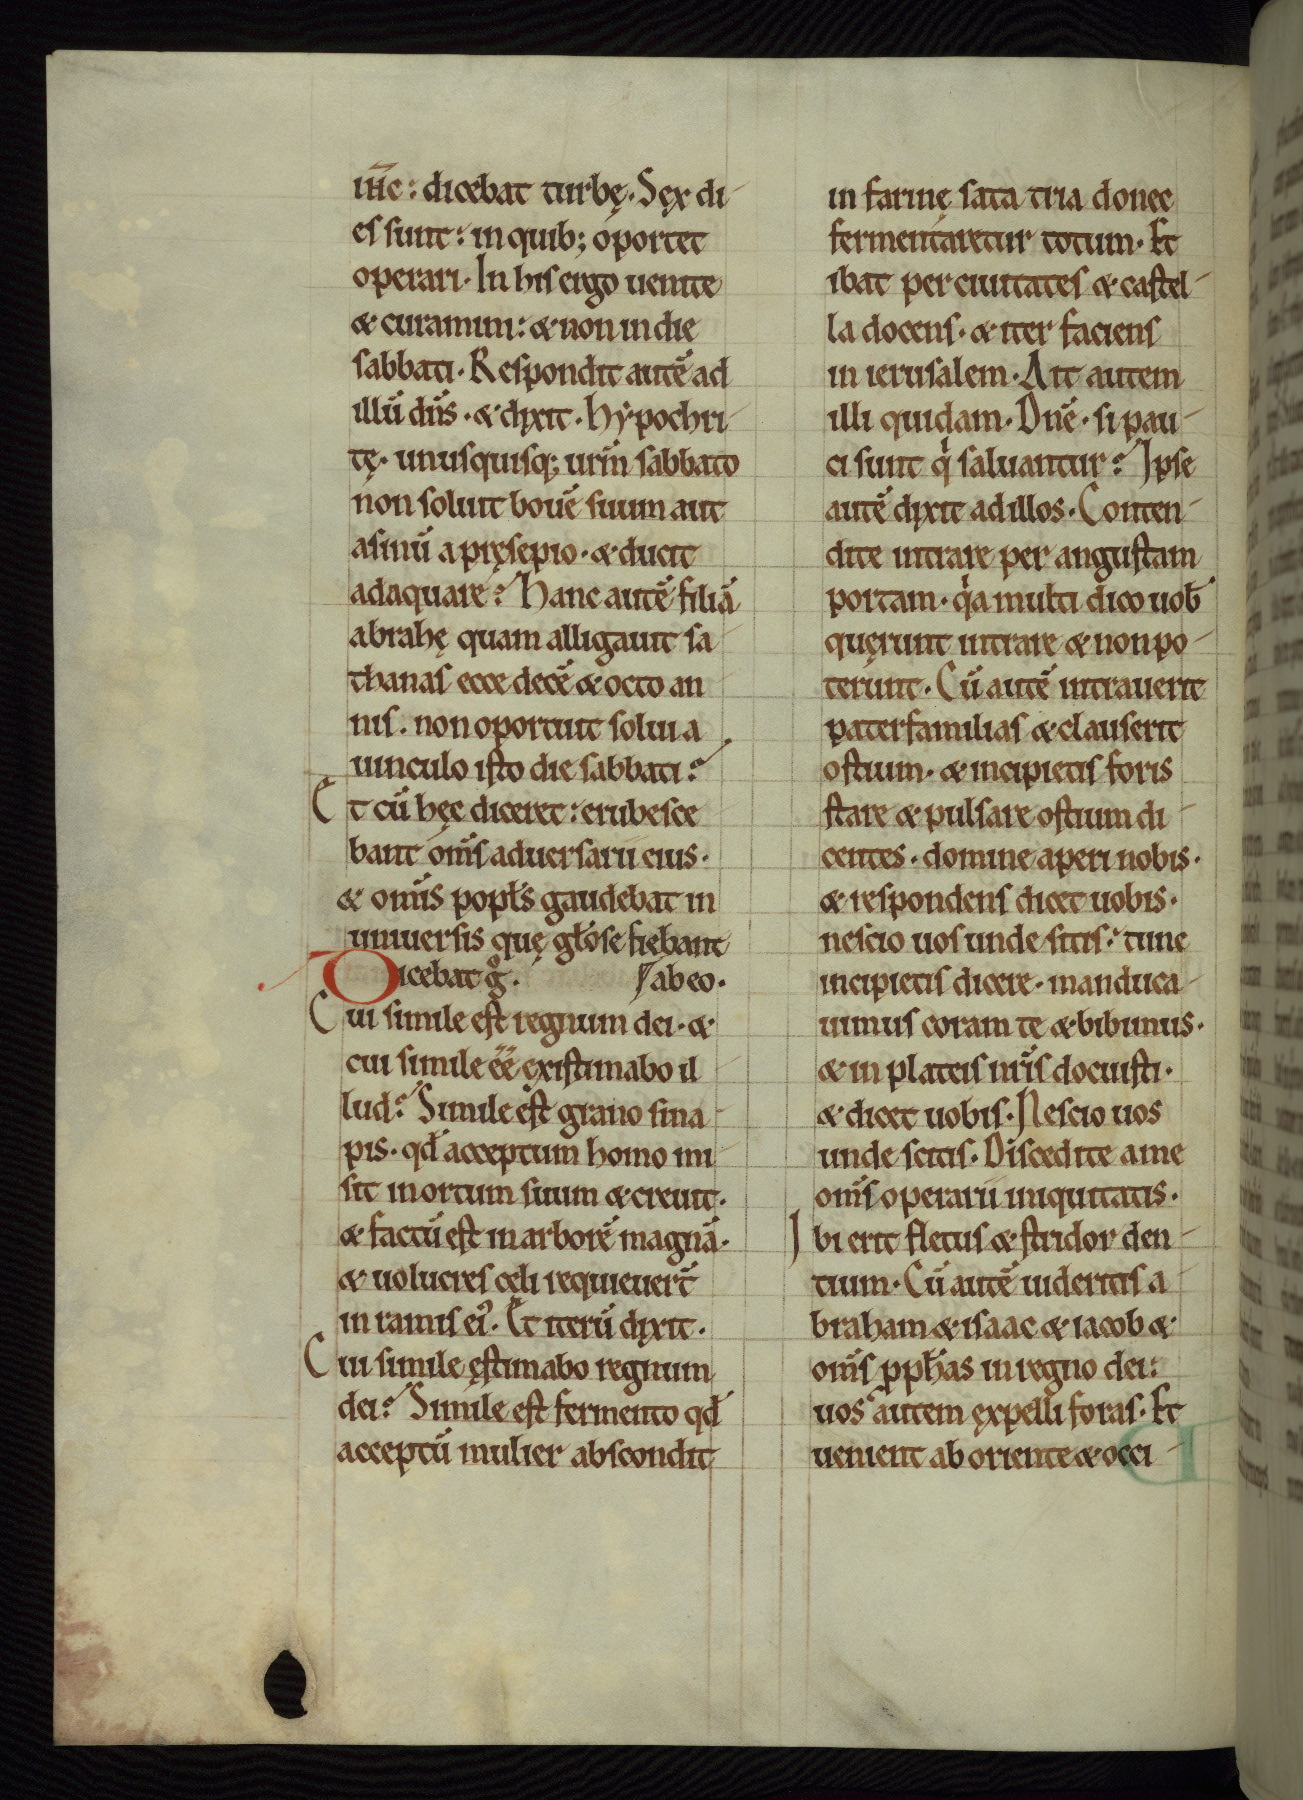 ihc: dicebat turbę. Sex di-
es sunt: in quib; oportet
operari. In his ergo uenite
& curamini: & non in die
sabbati. Respondit autē ad
illū dn̄s. & dixit. Hypochri-
tę. unusquisq; urm̄ sabbato
non soluit bouē suum aut
asinū a pręsepio. & ducit
adaquare? Hanc autē filiā
abrahę quam alligauit sa-
thanas ecce decē & octo an
nis. non oportuit solui a
uinculo isto die sabbati?
Et cū hęc diceret: erubesce
bant om̄s aduersarii eius.
& omīs popłs gaudebat in
uniuersis quę głose fiebant
Dicebat gͦ. / ab eo.
Cui simile est regnum dei. &
cui simile ēē existimabo il-
lud? Simile est grano sina-
pis. qđ acceptum homo mi-
sit in ortum suum & creuit.
& factū est in arborē magnā.
& uolucres cęli requieuert̄
in ramis ei'. Et iterū dixit.
Cui simile ęstimabo regnum
dei? Simile est fermento qđ
acceptū mulier abscondit
in farinę sata tria donec
fermentaretur totum. Et
ibat per ciuitates & castel-
la docens. & iter faciens
in ierusalem. Ait autem
illi quidam. Dn̄e. si pau-
ci sunt qͥ saluantur? Ipse
autē dixit ad illos. Conten-
dite intrare per angustam
portam. qͥa multi dico uob̄
quęrunt intrare & non po-
terunt. Cū autē intrauerit
paterfamilias & clauserit
ostium. & incipietis foris
stare & pulsare ostium di-
centes. domine aperi nobis.
& respondens dicet uobis.
nescio uos unde sitis. tunc
incipietis dicere. manduca-
uimus coram te & bibimus.
& in plateis nr̄is docuisti.
& dicet uobis. Nescio uos
unde scitis. Discedite a me
om̄s operarii iniquitatis.
Ibi erit fletus & stridor den-
tium. Cū autē uideritis a-
braham & isaac & iacob &
om̄s ꝓpħas in regno dei:
uos autem expelli foras. Et
uenient ab oriente & occi-